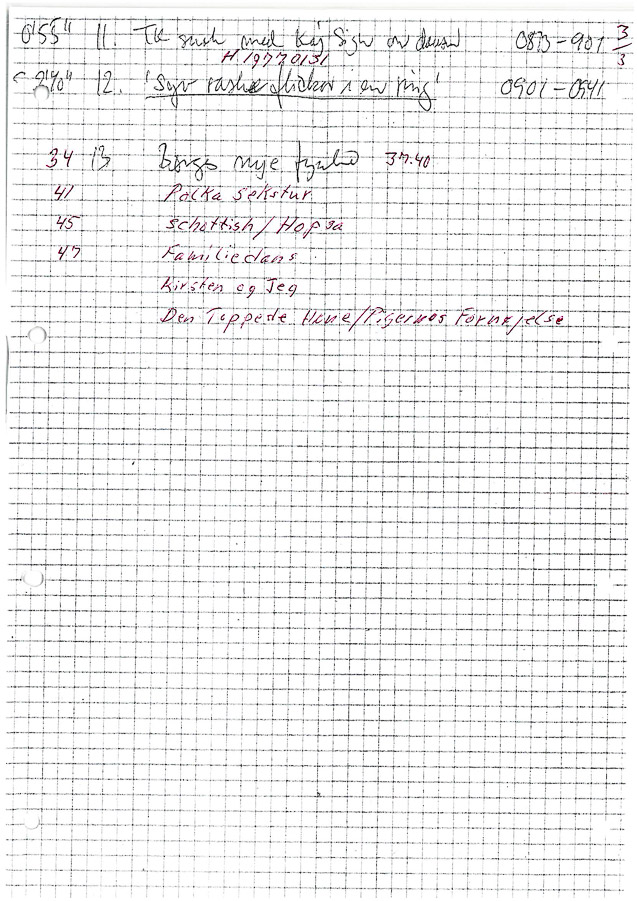 0'55" 11. TK snak med Kaj Sign om dansen 0873-901 3/3
H. 19770131
2'40" 12. 'Syv raske flickor i en ring' 0901-0941
34 13 Børges nye 37.40
41 Polka Sekstur
45 Schottish/Hopsa
47 Familiedans
Kirsten og Jeg
Den Toppede Høne/Pigernes Fornøjelse